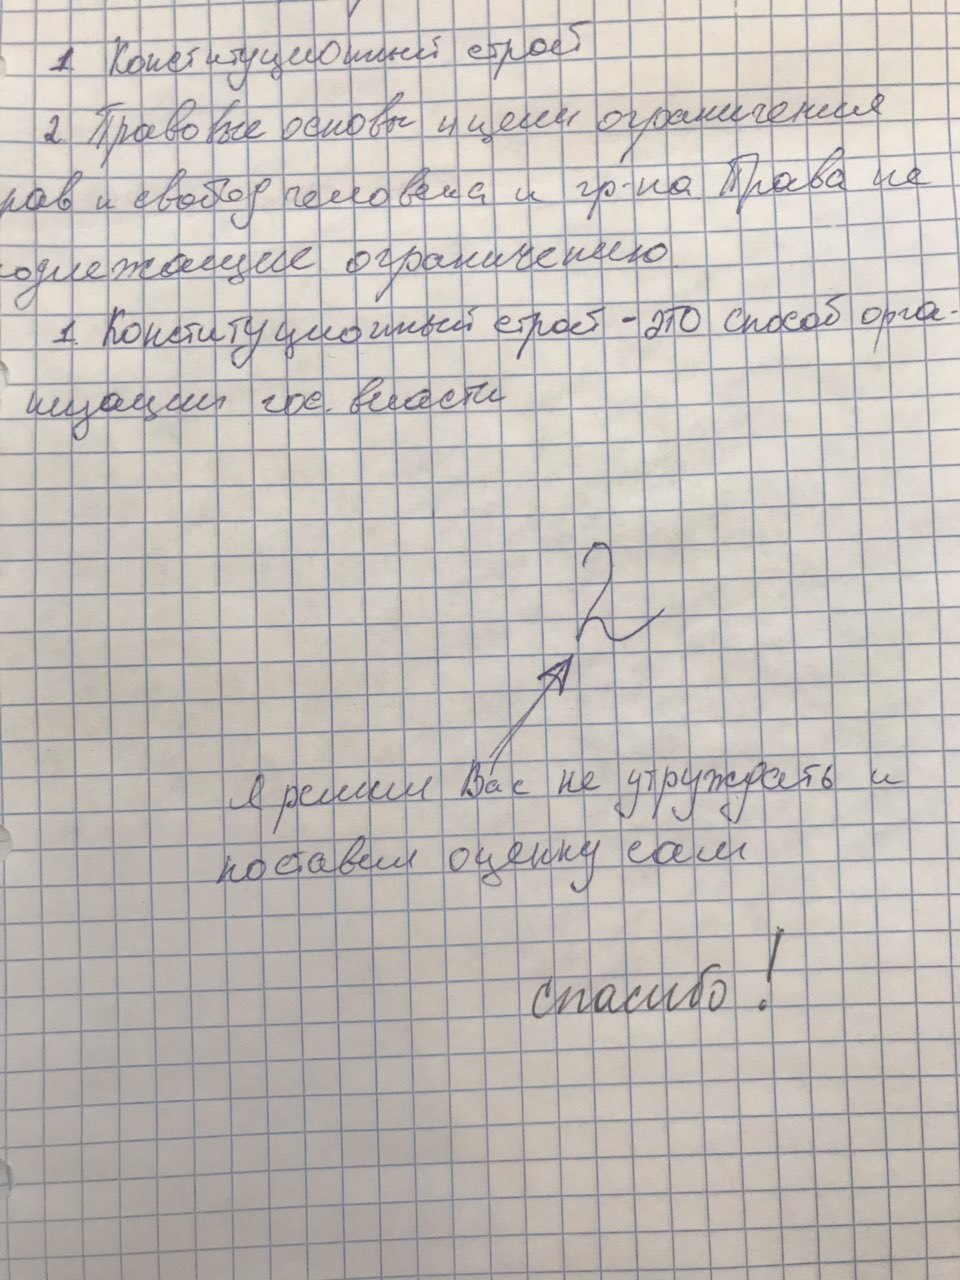 1. Конституционный строй
2. Правовые основы и цели ограничения
рав и свобод человека и гр-на. Права не
одлежащие ограничению.
1. Конституционный строй - это способ орга-
низации гос. власти
2
Я решил Вас не утруждать и
поставил оценку сам
спасибо!